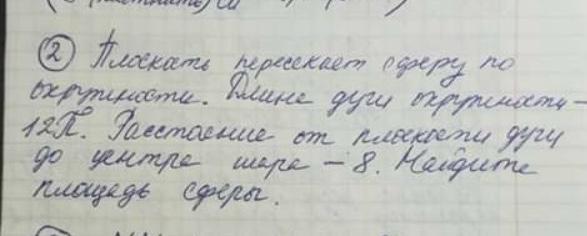 ② Плоскать пересекает сферу по
окружности. Длина дуги окружности -
12π. Расстояние от плоскости дуги
до центра шара – 8. Найдите
площадь сферы.